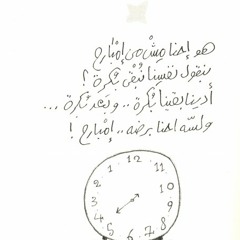 هو إحنا مِش من إمْبارح
بنقول نفسِنا نُبْقى بُكرة ؟
أدينا بقينا بُكرة .. وبَعد بُكرة ...
ولسّه احنا برضه .. إمْبارح !
1 12 11
2 10
3 9
4 8
5 6 7